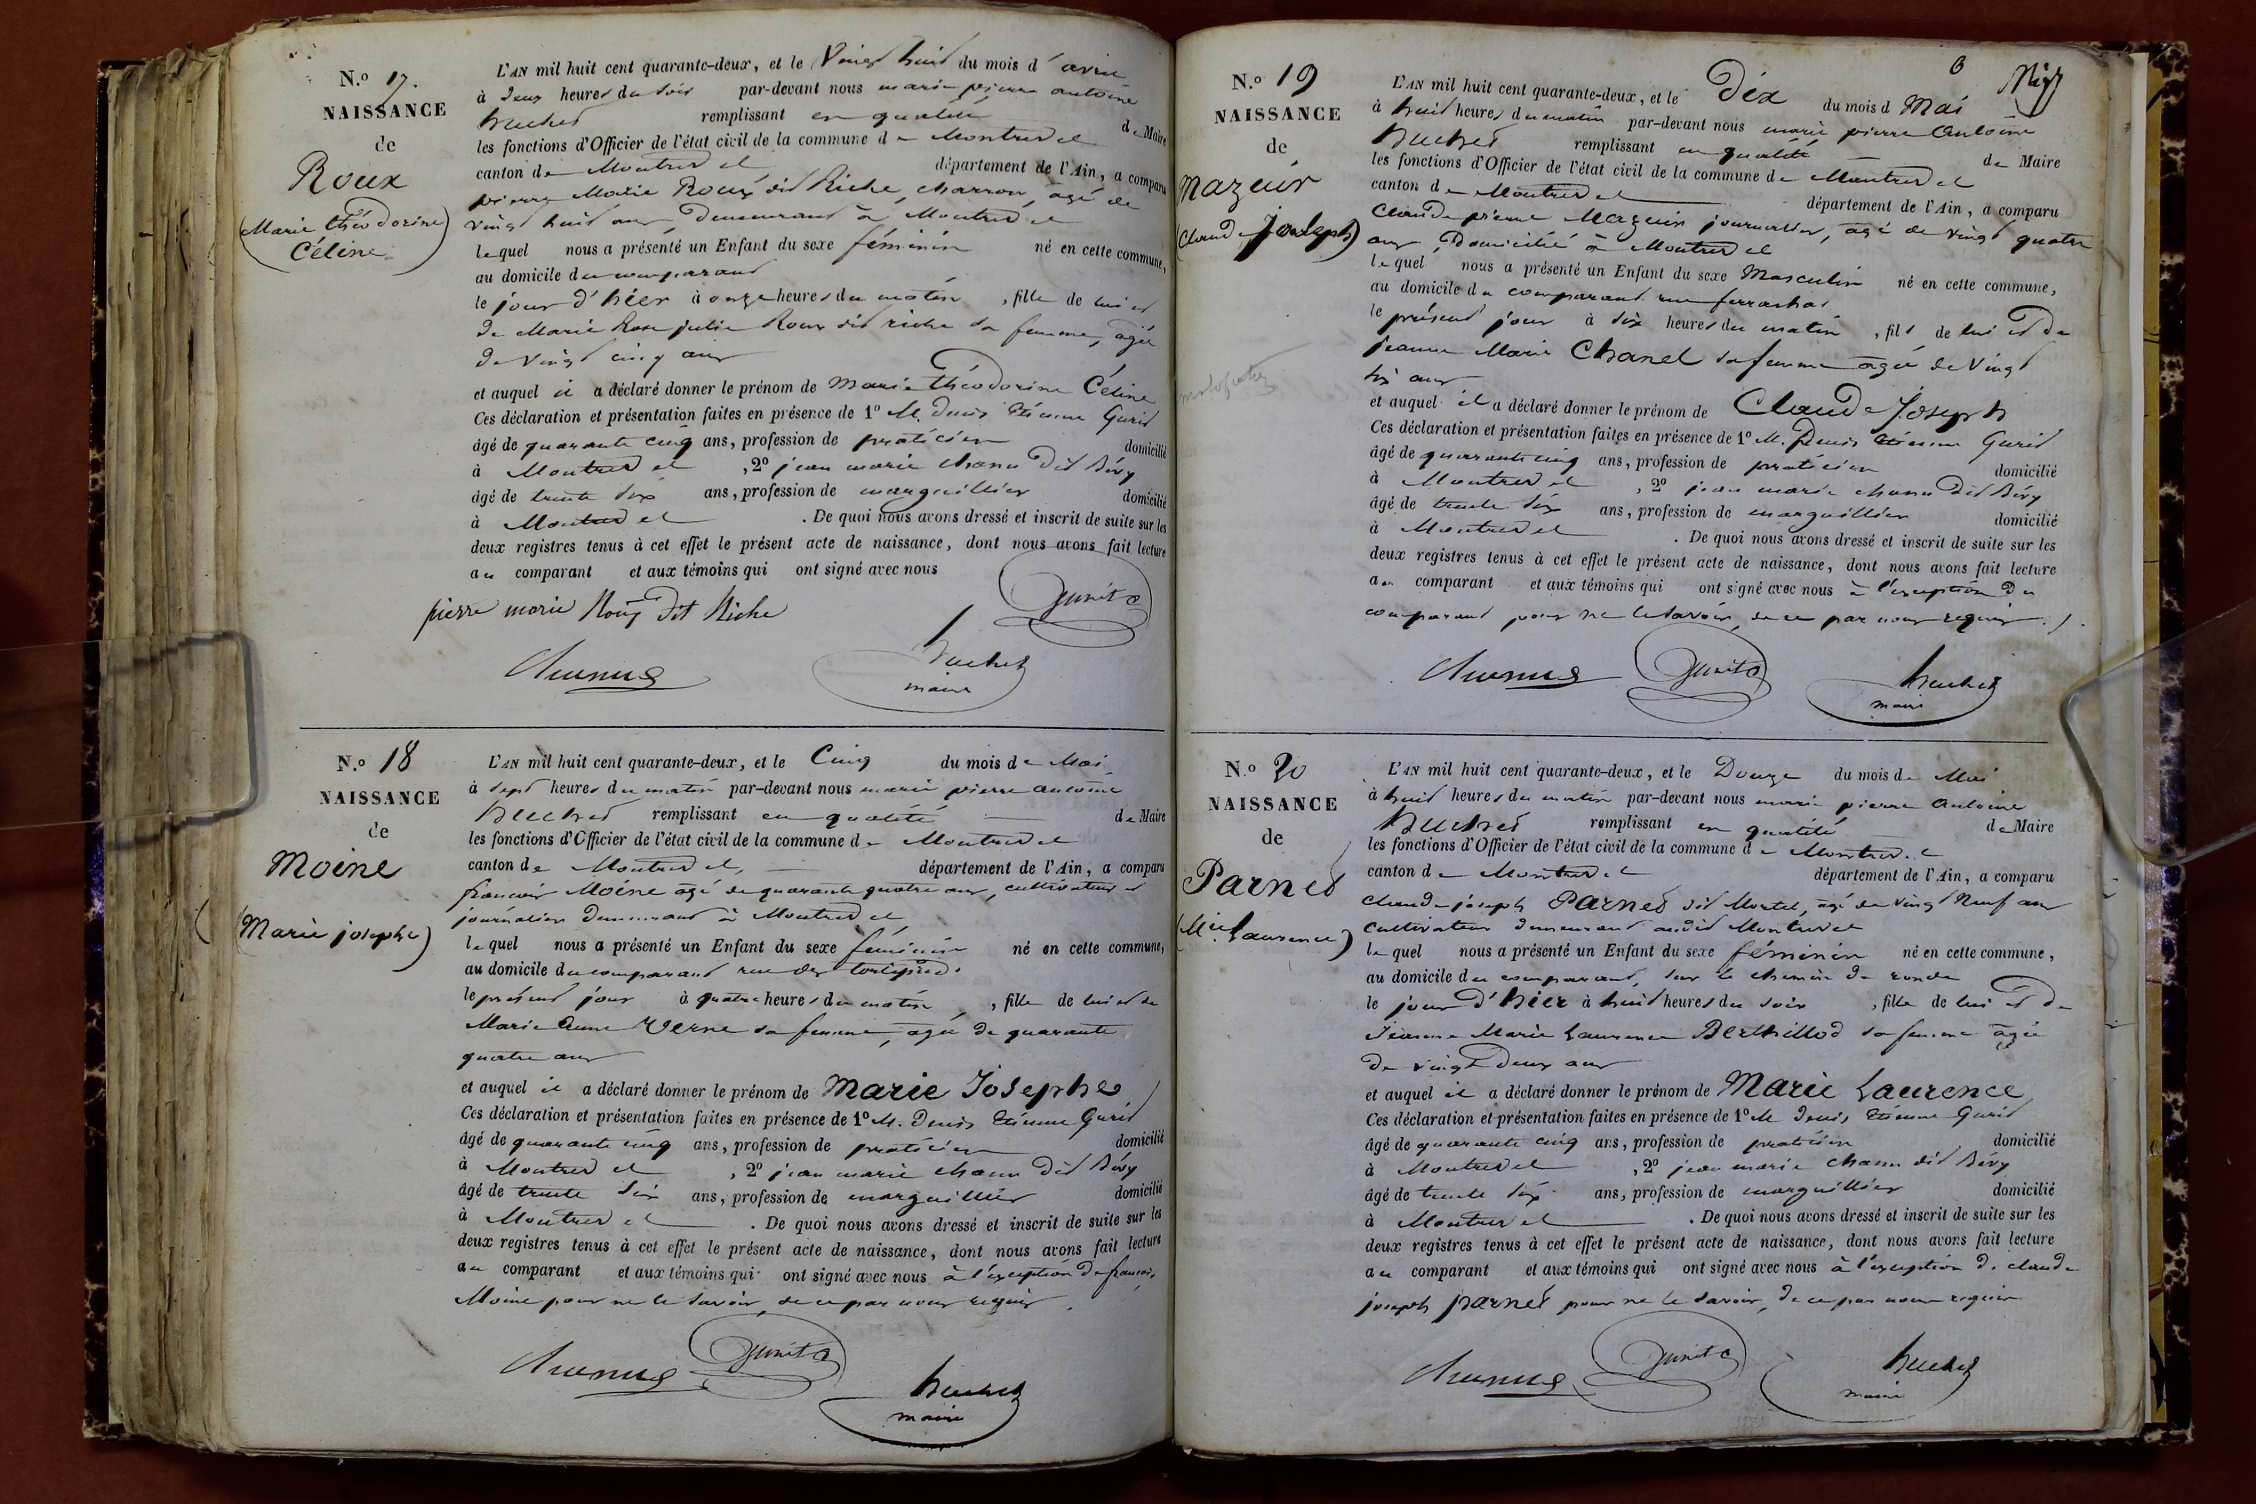 N.o 17.
NAISSANCE
de
Roux
(Marie théodorine
Céline)
L'AN mil huit cent quarante-deux, et le Vingt huit du mois d'avril
à deux heures du soir par-devant nous marie pierre antoine
huchet remplissant en qualité de Maire
les fonctions d'Officier de l'état civil de la commune de Montrevel
canton de Montrevel département de l'Ain, a comparu
pierre Marie Roux dit Riche, charron, agé de
vingt huit ans, demeurant à Montrevel
lequel nous a présenté un Enfant du sexe féminin né en cette commune,
au domicile du comparant
le jour d'hier à onze heures du matin, fille de lui et
de Marie Rose julie Roux dit riche sa femme, agée
de vingt cinq ans
et auquel il a déclaré donner le prénom de Marie théodorine Céline
Ces déclaration et présentation faites en présence de 1o M. denis Etienne Gurit
âgé de quarante cinq ans, profession de praticien domicilié
à Montrevel, 2o jean marie chanu dit Bévy
âgé de trente six ans, profession de marguillier domicilié
à Montrevel. De quoi nous avons dressé et inscrit de suite sur les
deux registres tenus à cet effet le présent acte de naissance, dont nous avons fait lecture
au comparant et aux témoins qui ont signé avec nous
pierre marie Roux dit Riche
Gurit
huchet
maire
N.o 18
NAISSANCE
de
Moine
(Marie josephe)
L'AN mil huit cent quarante-deux, et le Cinq du mois de Mai
à sept heures du matin par-devant nous marie pierre antoine
huchet remplissant en qualité de Maire
les fonctions d'Officier de l'état civil de la commune de Montrevel
canton de Montrevel, département de l'Ain, a comparu
francois Moine agé de quarante quatre ans, cultivateur et
journalier demeurant à Montrevel
lequel nous a présenté un Enfant du sexe féminin né en cette commune,
au domicile du comparant rue des
le présent jour à quatre heures du matin, fille de lui et de
Marie Anne Verne sa femme, agée de quarante
quatre ans
et auquel il a déclaré donner le prénom de Marie Josephe
Ces déclaration et présentation faites en présence de 1o M. Denis Etienne Gurit
âgé de quarante cinq ans, profession de praticien domicilié
à Montrevel, 2o jean marie chanu dit Bévy
âgé de trente six ans, profession de marguillier domicilié
à Montrevel. De quoi nous avons dressé et inscrit de suite sur les
deux registres tenus à cet effet le présent acte de naissance, dont nous avons fait lecture
au comparant et aux témoins qui ont signé avec nous à l'exception de francois
Moine pour ne le savoir, de ce par nous requis
Gurit
huchet
maire
6
N.o 19
NAISSANCE
de
Mazuir
(Claude Joseph)
L'AN mil huit cent quarante-deux, et le Dix du mois d Mai
à huit heures du matin par-devant nous marie pierre Antoine
huchet remplissant en qualité de Maire
les fonctions d'Officier de l'état civil de la commune de Montrevel
canton de Montrevel département de l'Ain, a comparu
Claude pierre Mazuir journalier, agé de vingt quatre
ans, Domicilié à Montrevel
lequel nous a présenté un Enfant du sexe Masculin né en cette commune,
au domicile du comparant rue
le présent jour à six heures du matin, fils de lui et de
jeanne Marie Chanel sa femme agée de Vingt
six ans
et auquel il a déclaré donner le prénom de Claude Joseph
Ces déclaration et présentation faites en présence de 1o M. Denis Etienne Gurit
âgé de quarante cinq ans, profession de praticien domicilié
à Montrevel, 2o jean marie chanu dit Bévy
âgé de trente six ans, profession de marguillier domicilié
à Montrevel. De quoi nous avons dressé et inscrit de suite sur les
deux registres tenus à cet effet le présent acte de naissance, dont nous avons fait lecture
au comparant et aux témoins qui ont signé avec nous à l'exception du
comparant pour ne le savoir, de ce par nous requis
Gurit
huchet
maire
N.o 20
NAISSANCE
de
Parnet
(Mie Laurence)
L'AN mil huit cent quarante-deux, et le Douze du mois de Mai
à huit heures du matin par-devant nous marie pierre Antoine
huchet remplissant en qualité de Maire
les fonctions d'Officier de l'état civil de la commune de Montrevel
canton de Montrevel département de l'Ain, a comparu
Claude joseph Parnet dit Mortel, agé de vingt Neuf ans
cultivateur demeurant audit Montrevel
lequel nous a présenté un Enfant du sexe féminin né en cette commune,
au domicile du comparant, sur le chemin de ronde
le jour d'hier à huit heures du soir, fille de lui et de
Jeanne Marie Laurence Berthillod sa femme agée
de vingt deux ans
et auquel il a déclaré donner le prénom de Marie Laurence
Ces déclaration et présentation faites en présence de 1o M Denis Etienne Gurit
âgé de quarante cinq ans, profession de praticien domicilié
à Montrevel, 2o jean marie chanu dit Bévy
âgé de trente six ans, profession de marguillier domicilié
à Montrevel. De quoi nous avons dressé et inscrit de suite sur les
deux registres tenus à cet effet le présent acte de naissance, dont nous avons fait lecture
au comparant et aux témoins qui ont signé avec nous à l'exception de claude
joseph parnet pour ne le savoir, de ce par nous requis
Gurit
huchet
maire